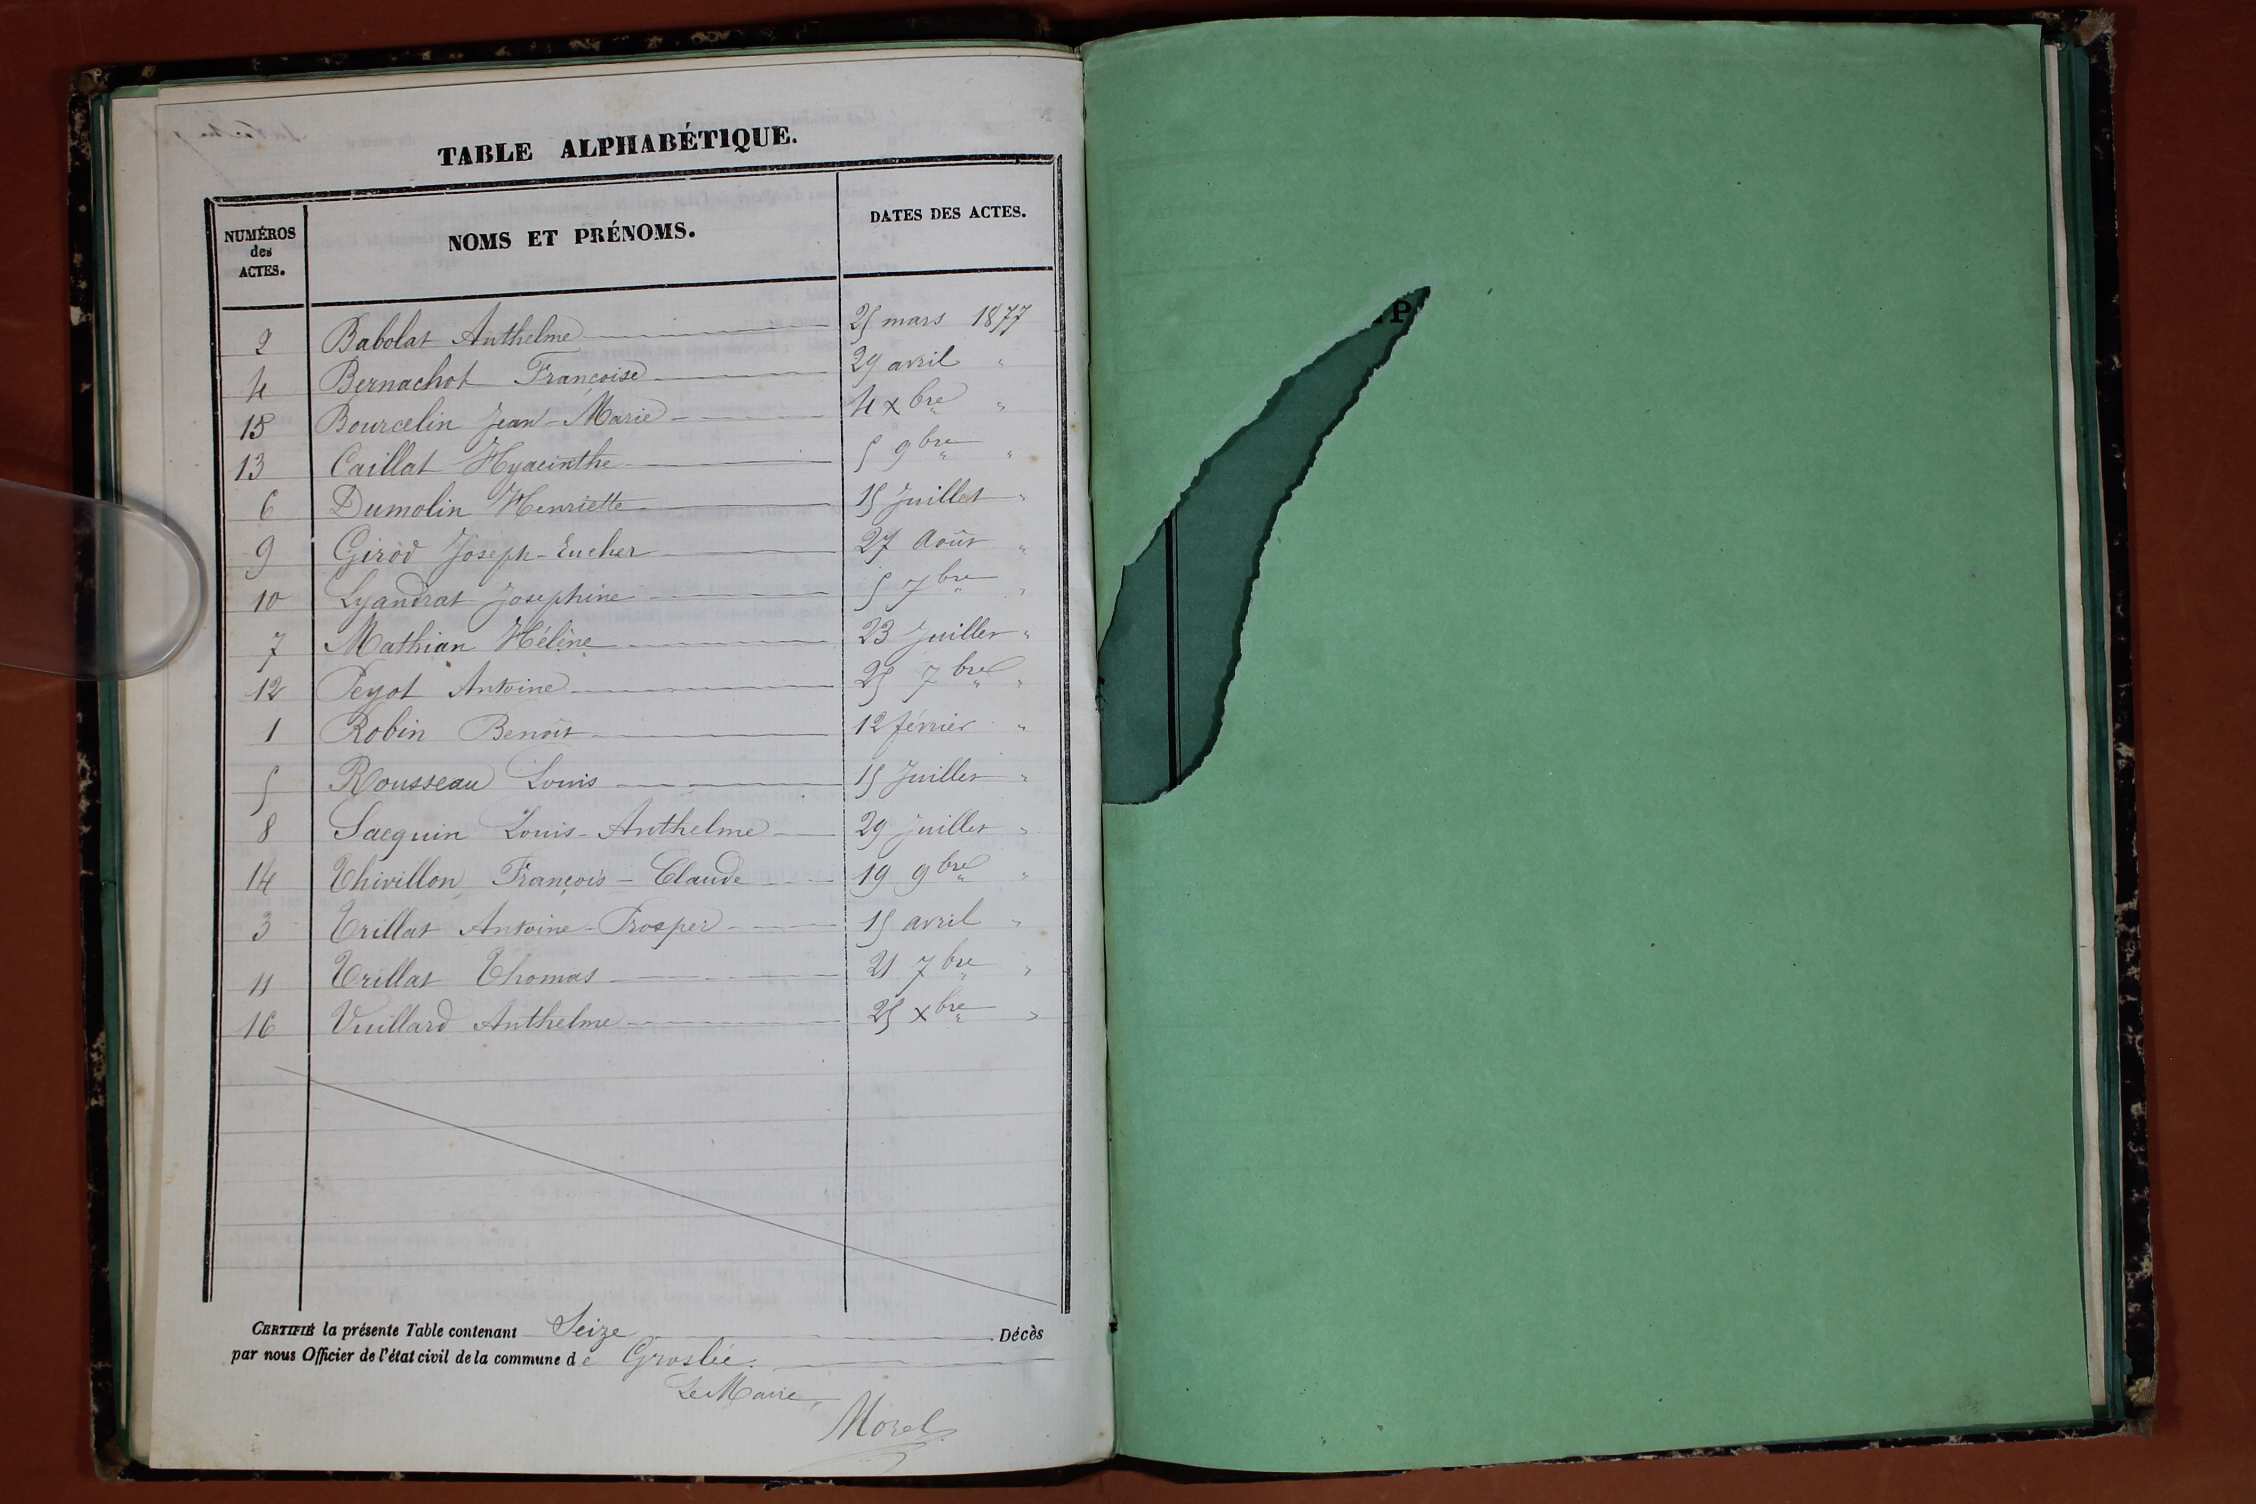 TABLE ALPHABÉTIQUE.
NUMÉROS des ACTES. NOMS ET PRÉNOMS. DATES DES ACTES.
2 Babolat Anthelme 25 mars 1877
4 Bernachot Françoise 29 avril "
15 Bourcelin Jean-Marie 4 xbre "
13 Caillat Hyacinthe 5 9bre "
6 Dumolin Henriette 15 Juillet "
9 Girod Joseph-Eucher 27 Août "
10 Lyandrat Josephine 5 7bre "
7 Mathian Hélène 23 Juillet "
12 Peyot Antoine 25 7bre "
1 Robin Benoît 12 février "
5 Rousseau Louis 15 Juillet "
8 Sacquin Louis-Anthelme 29 Juillet "
14 Thivillon François-Claude 19 9bre "
3 Trillat Antoine-Prosper 15 avril "
11 Trillat Thomas 21 7bre "
16 Vuillard Anthelme 25 xbre "
CERTIFIÉ la présente Table contenant Seize Décès
par nous Officier de l'état civil de la commune de Groslée.
Le Maire,
Morel
P